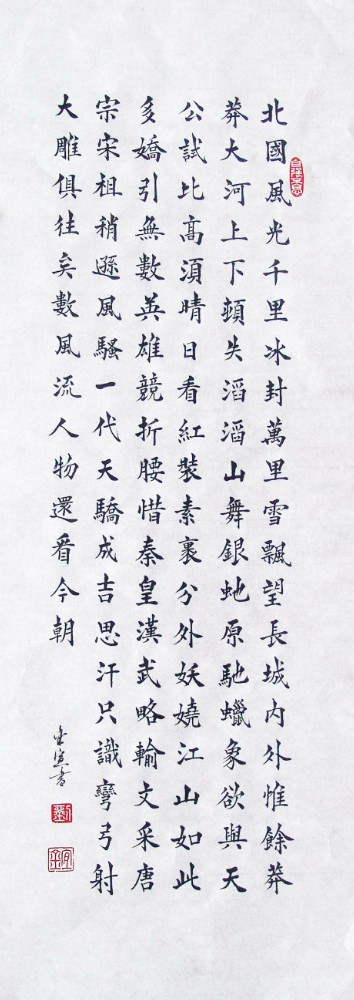 北國風光千里冰封萬里雪飄望長城內外惟餘莽
莽大河上下頓失滔滔山舞銀虵原馳蠟象欲與天
公試比高湏晴日看紅裝素裹分外妖嬈江山如此
多嬌引無數英雄競折腰惜秦皇漢武略輸文采唐
宗宋祖稍遜風騷一代天驕成吉思汗只識彎弓射
大雕俱往矣數風流人物還看今朝
書
劉